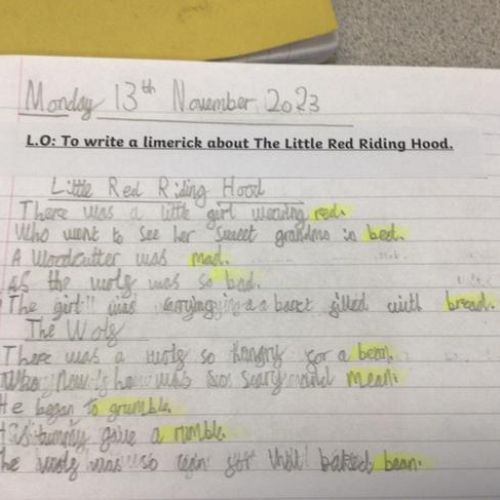 Monday 13th November 2023
L.O: To write a limerick about The Little Red Riding Hood.
Little Red Riding Hood
There was a little girl wearing red.
Who went to see her sweet grandma in bed.
A Woodcutter was mad.
as the wolf was so bad.
The girl was carrying a basct filled with bread.
The Wolf
There was a wolf so hungry for a bean.
Who was so scary and mean.
He began to grumble.
His tummy gave a rumble.
The wolf was so for that baked bean.